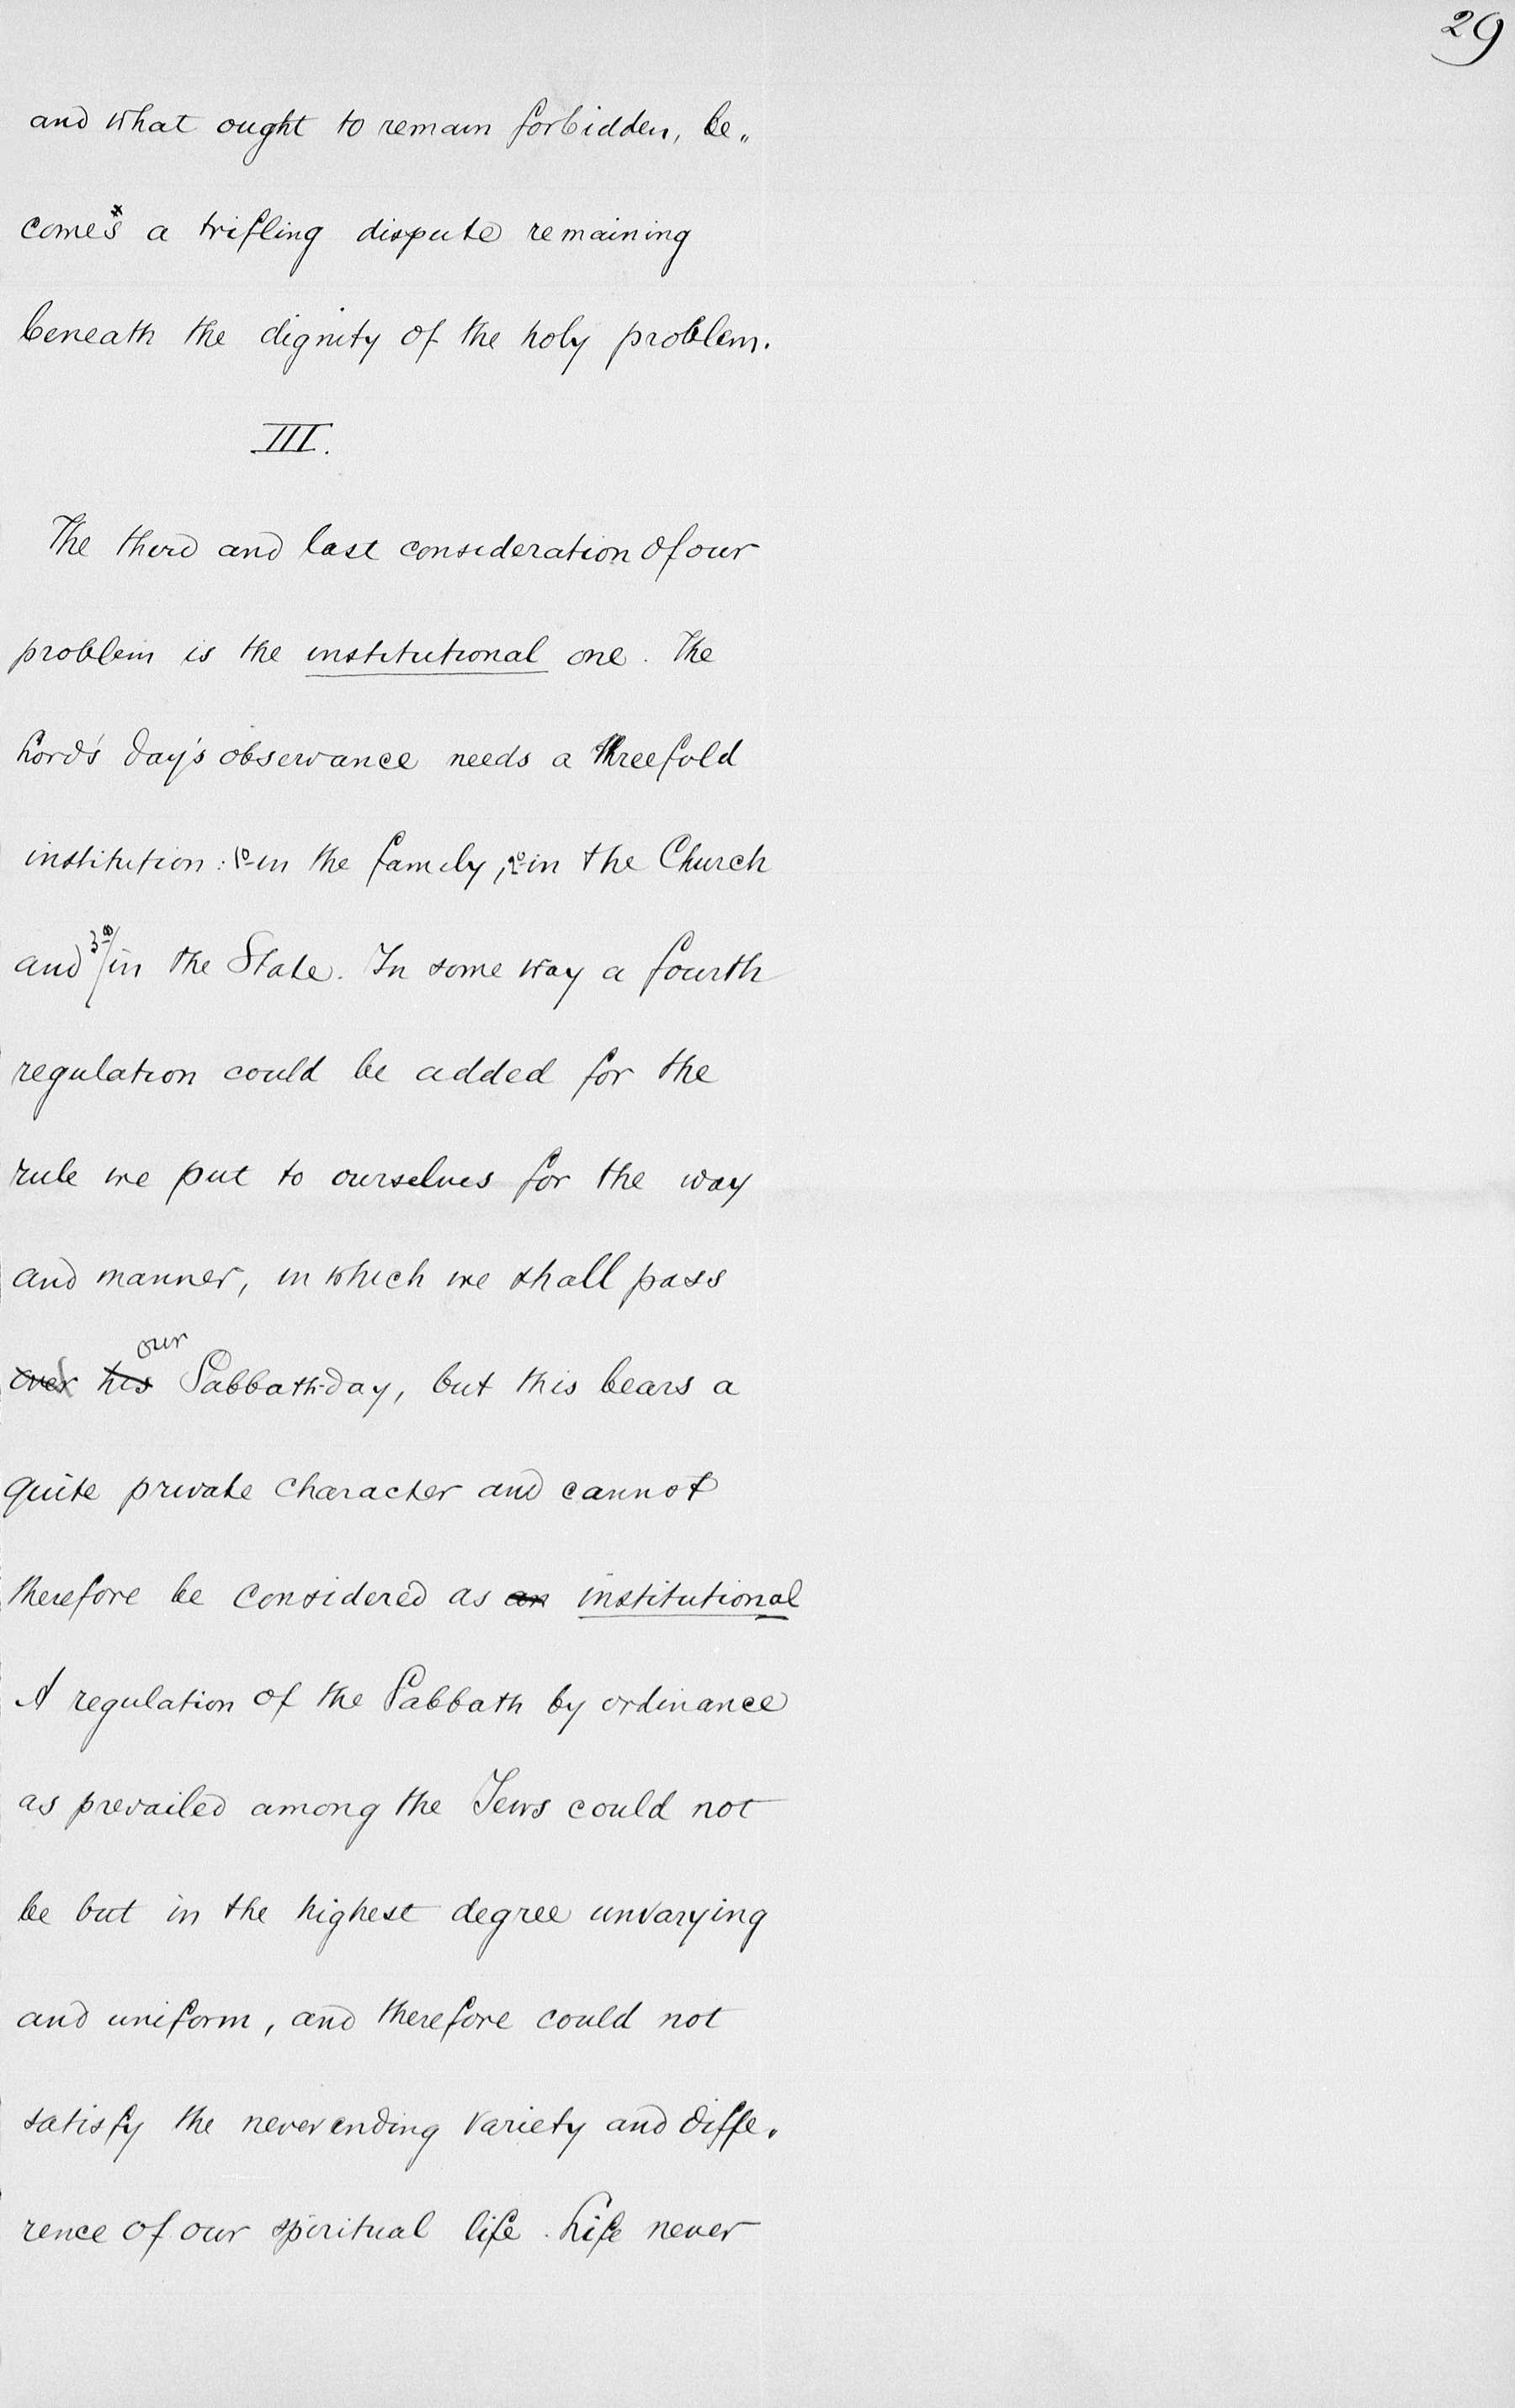 29
and what ought to remain forbidden, be„
comes a trifling dispute remaining
beneath the dignity of the holy problem.
III.
The third and last consideration of our
problem is the institutional one. The
Lord's day's observance needs a threefold
institution: 1º in the family, 2º in the Church
and 3º in the State. In some way a fourth
regulation could be added for the
rule we put to ourselves for the way
and manner, in which we shall pass
our
over his Sabbath-day, but this bears a
quite private character and cannot
therefore be considered as an institutional
A regulation of the Sabbath by ordinance
as prevailed among the Jews could not
be but in the highest degree unvarying
and uniform, and therefore could not
satisfy the never ending variety and diffe„
rence of our spiritual life. Life never